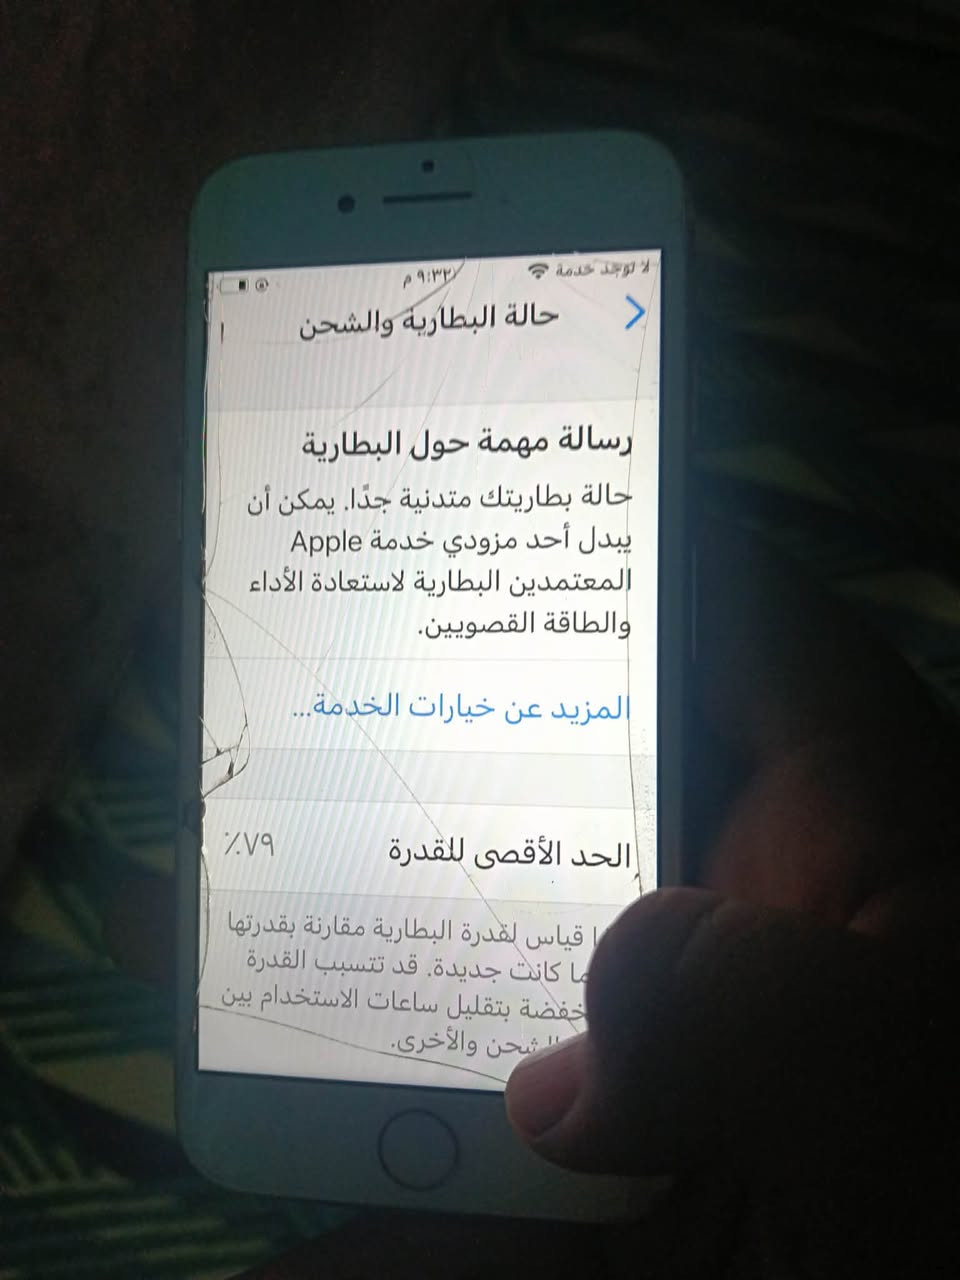 لا توجد خدمة
٩:٣٢ م
حالة البطارية والشحن
رسالة مهمة حول البطارية
حالة بطاريتك متدنية جدًا. يمكن أن
يبدل أحد مزودي خدمة Apple
المعتمدين البطارية لاستعادة الأداء
والطاقة القصويين.
المزيد عن خيارات الخدمة...
الحد الأقصى للقدرة ٧٩٪
قياس لقدرة البطارية مقارنة بقدرتها
كانت جديدة. قد تتسبب القدرة
بتقليل ساعات الاستخدام بين
الشحن والأخرى.